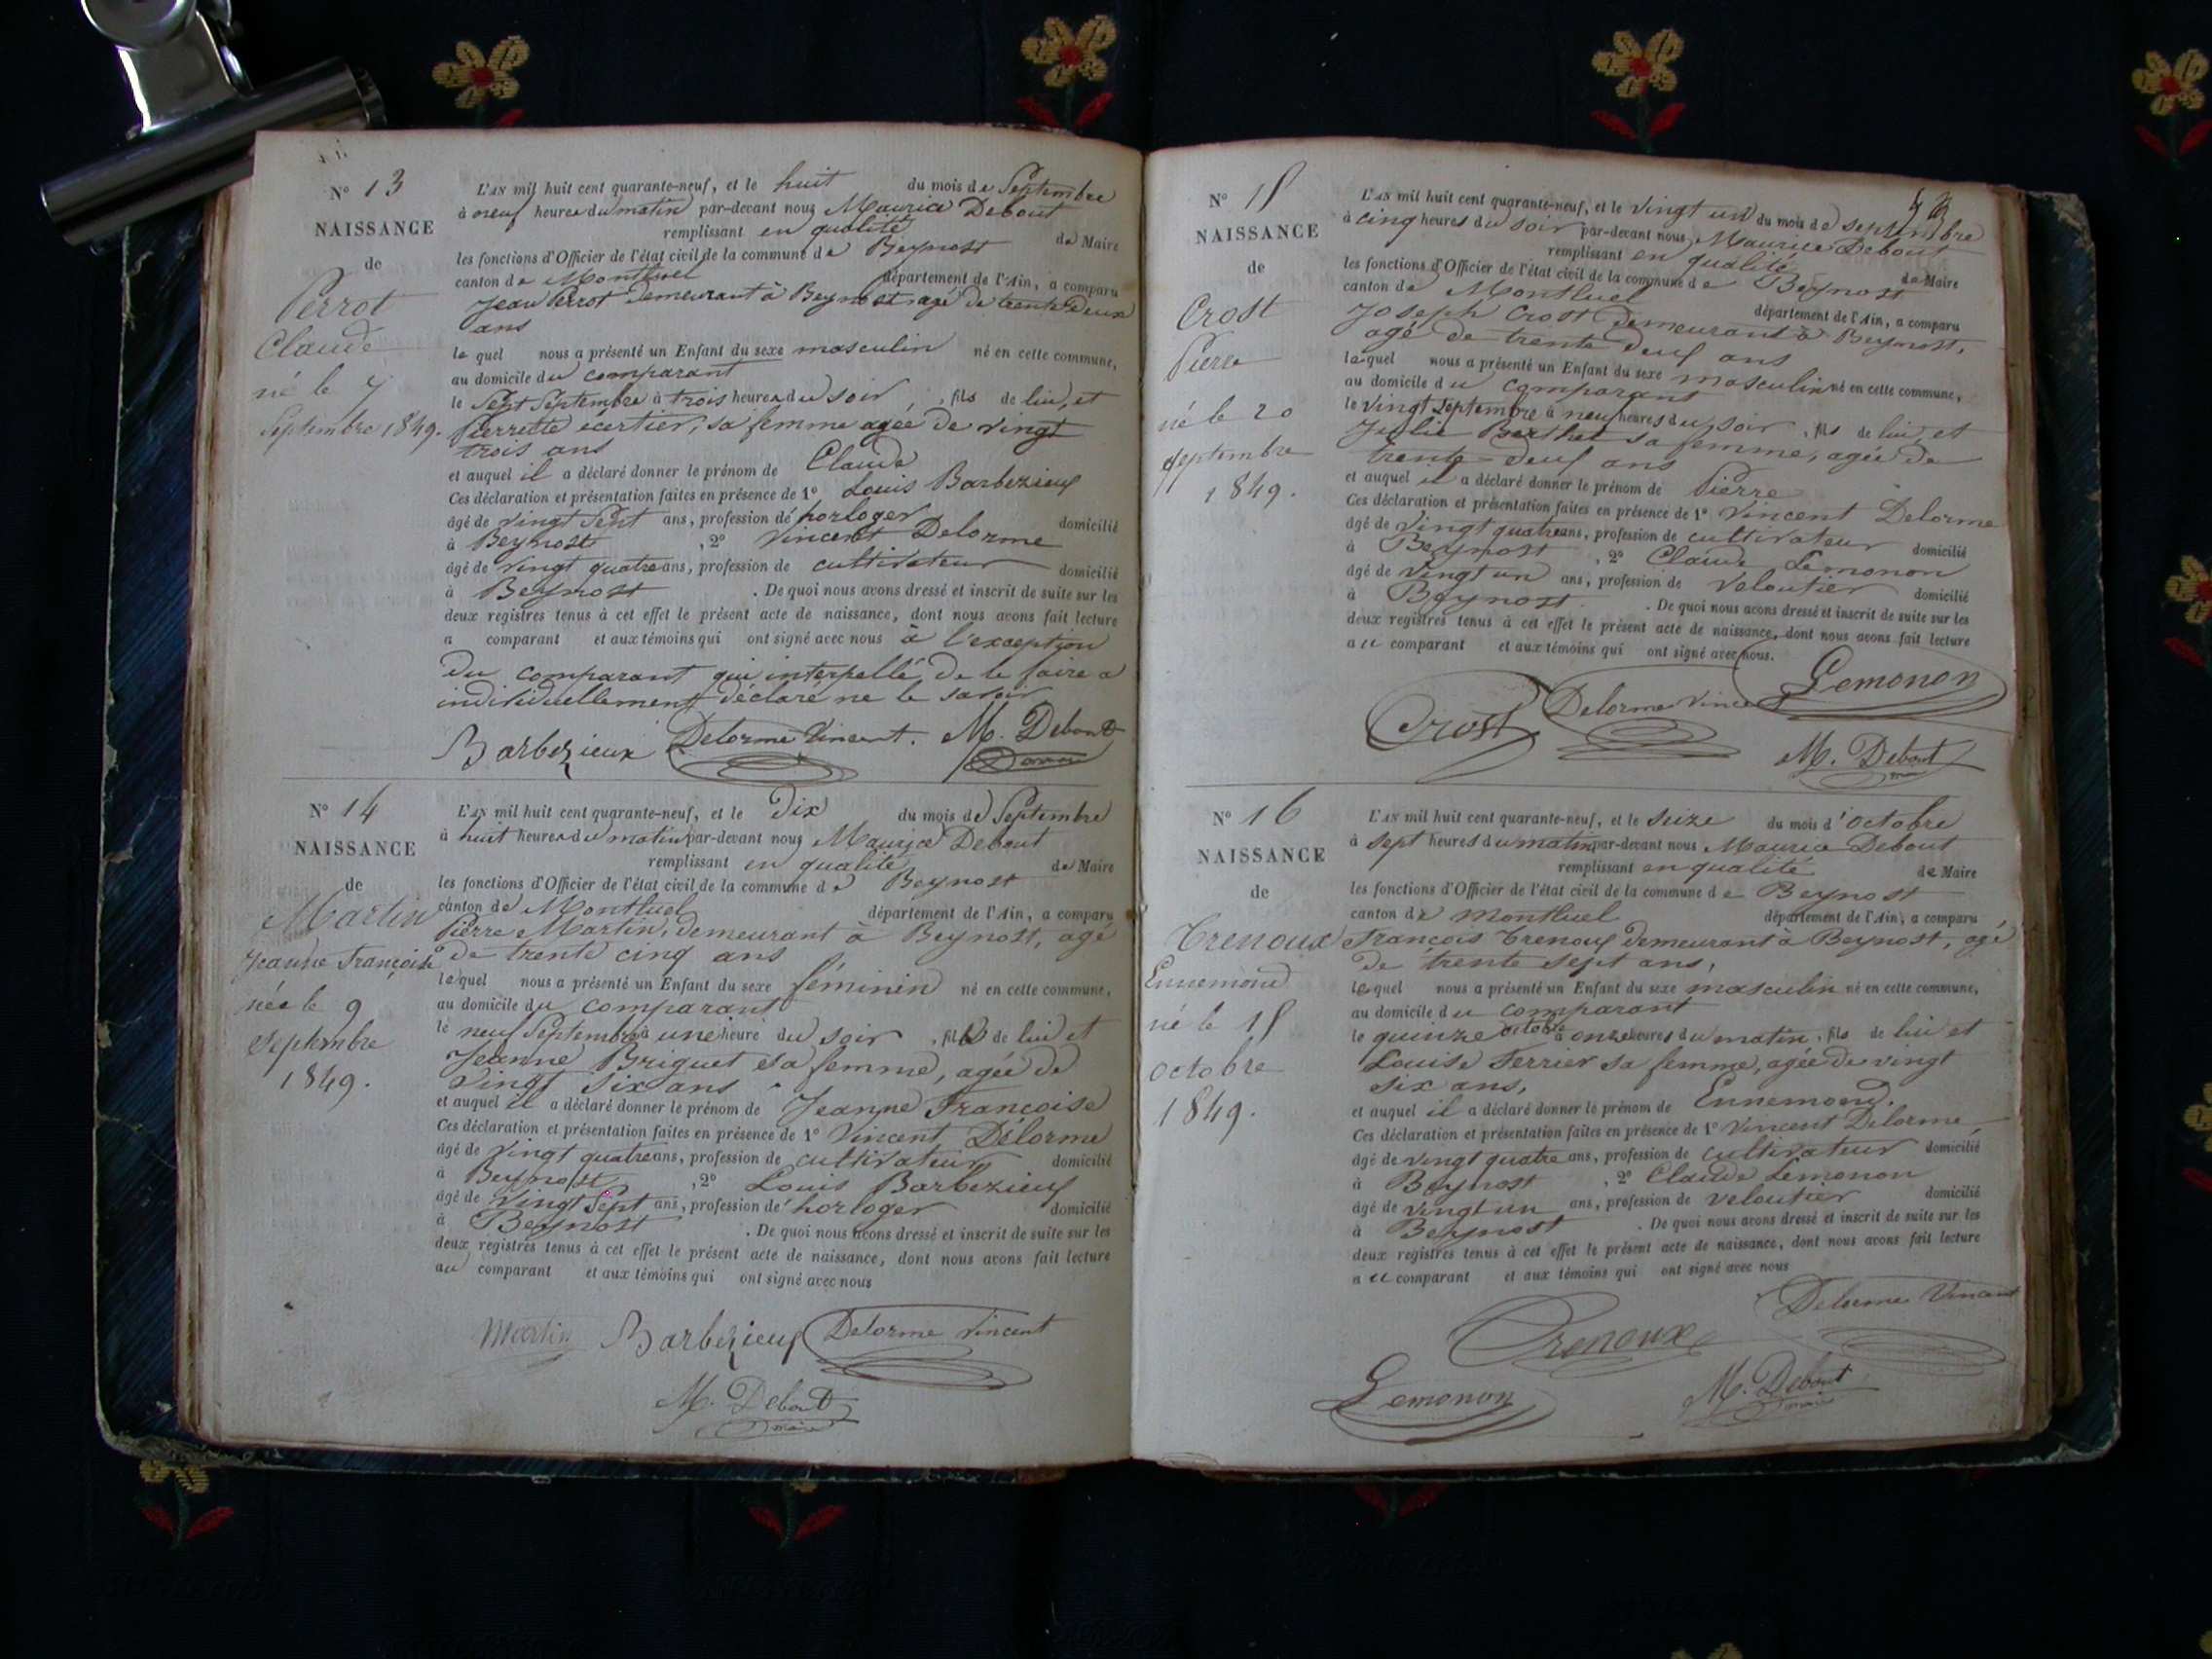 N° 13
NAISSANCE
de
Perrot
Claude
né le 7
Septembre 1849.
L'AN mil huit cent quarante-neuf, et le huit du mois de Septembre
à neuf heures du matin par-devant nous Maurice Debout
remplissant en qualité de Maire
les fonctions d'Officier de l'état civil de la commune de Beynost
canton de Montluel département de l'Ain, a comparu
Jean Perrot demeurant à Beynost agé de trente deux
ans
lequel nous a présenté un Enfant du sexe masculin né en cette commune,
au domicile du comparant
le Sept Septembre à trois heures du soir, fils de lui, et
pierrette ecertier, sa femme agée de vingt
trois ans
et auquel il a déclaré donner le prénom de Claude
Ces déclaration et présentation faites en présence de 1° Louis Barbezieux
âgé de vingt Sept ans, profession de horloger domicilié
à Beynost, 2° Vincent Delorme
âgé de vingt quatre ans, profession de cultivateur domicilié
à Beynost. De quoi nous avons dressé et inscrit de suite sur les
deux registres tenus à cet effet le présent acte de naissance, dont nous avons fait lecture
a comparant et aux témoins qui ont signé avec nous à l'exception
du comparant qui interpellé de le faire a
individuellement déclaré ne le savoir
Barbezieux Delorme Vincent. M. Debout
N° 14
NAISSANCE
de
Martin
Jeanne Françoise
née le 9
Septembre
1849.
L'AN mil huit cent quarante-neuf, et le Dix du mois de Septembre
à huit heures du matin par-devant nous Maurice Debout
remplissant en qualité de Maire
les fonctions d'Officier de l'état civil de la commune de Beynost
canton de Montluel département de l'Ain, a comparu
Pierre Martin, demeurant à Beynost, agé
de trente cinq ans
lequel nous a présenté un Enfant du sexe féminin né en cette commune,
au domicile du comparant
le neuf Septembre à une heure du soir, fille de lui et
Jeanne Briguet sa femme, agée de
vingt six ans
et auquel il a déclaré donner le prénom de Jeanne Françoise
Ces déclaration et présentation faites en présence de 1° Vincent Délorme
âgé de vingt quatre ans, profession de cultivateur domicilié
à Beynost, 2° Louis Barbezieux
âgé de vingt Sept ans, profession de horloger domicilié
à Beynost. De quoi nous avons dressé et inscrit de suite sur les
deux registres tenus à cet effet le présent acte de naissance, dont nous avons fait lecture
au comparant et aux témoins qui ont signé avec nous
Martin Barbezieux Delorme Vincent
M. Debout
maire
N° 15
NAISSANCE
de
Crost
Pierre
né le 20
septembre
1849.
L'AN mil huit cent quarante-neuf, et le vingt un du mois de septembre
à cinq heures du soir par-devant nous Maurice Debout
remplissant en qualité de Maire
les fonctions d'Officier de l'état civil de la commune de Beynost
canton de Montluel département de l'Ain, a comparu
Joseph Crost demeurant à Beynost,
agé de trente deux ans
lequel nous a présenté un Enfant du sexe masculin né en cette commune,
au domicile du comparant
le vingt septembre à neuf heures du soir, fils de lui, et
Julie Berthet sa femme, agée de
trente-deux ans
et auquel il a déclaré donner le prénom de Pierre
Ces déclaration et présentation faites en présence de 1° Vincent Delorme
âgé de vingt quatre ans, profession de cultivateur domicilié
à Beynost, 2° Claude Lemonon
âgé de vingt un ans, profession de veloutier domicilié
à Beynost. De quoi nous avons dressé et inscrit de suite sur les
deux registres tenus à cet effet le présent acte de naissance, dont nous avons fait lecture
au comparant et aux témoins qui ont signé avec nous.
Crost Delorme Vincent Lemonon
M. Debout
N° 16
NAISSANCE
de
Trenoux
Ennemond
né le 15
octobre
1849.
L'AN mil huit cent quarante-neuf, et le seize du mois d'octobre
à sept heures du matin par-devant nous Maurice Debout
remplissant en qualité de Maire
les fonctions d'Officier de l'état civil de la commune de Beynost
canton de Montluel département de l'Ain, a comparu
François Trenoux demeurant à Beynost, agé
de trente sept ans,
lequel nous a présenté un Enfant du sexe masculin né en cette commune,
au domicile du comparant
le quinze octobre à onze heures du matin, fils de lui et
Louise Ferrier sa femme, agée de vingt
six ans,
et auquel il a déclaré donner le prénom de Ennemond.
Ces déclaration et présentation faites en présence de 1° Vincent Delorme,
âgé de vingt quatre ans, profession de cultivateur domicilié
à Beynost, 2° Claude Lemonon
âgé de vingt un ans, profession de veloutier domicilié
à Beynost. De quoi nous avons dressé et inscrit de suite sur les
deux registres tenus à cet effet le présent acte de naissance, dont nous avons fait lecture
au comparant et aux témoins qui ont signé avec nous
Trenoux Delorme Vincent
Lemonon M. Debout
maire